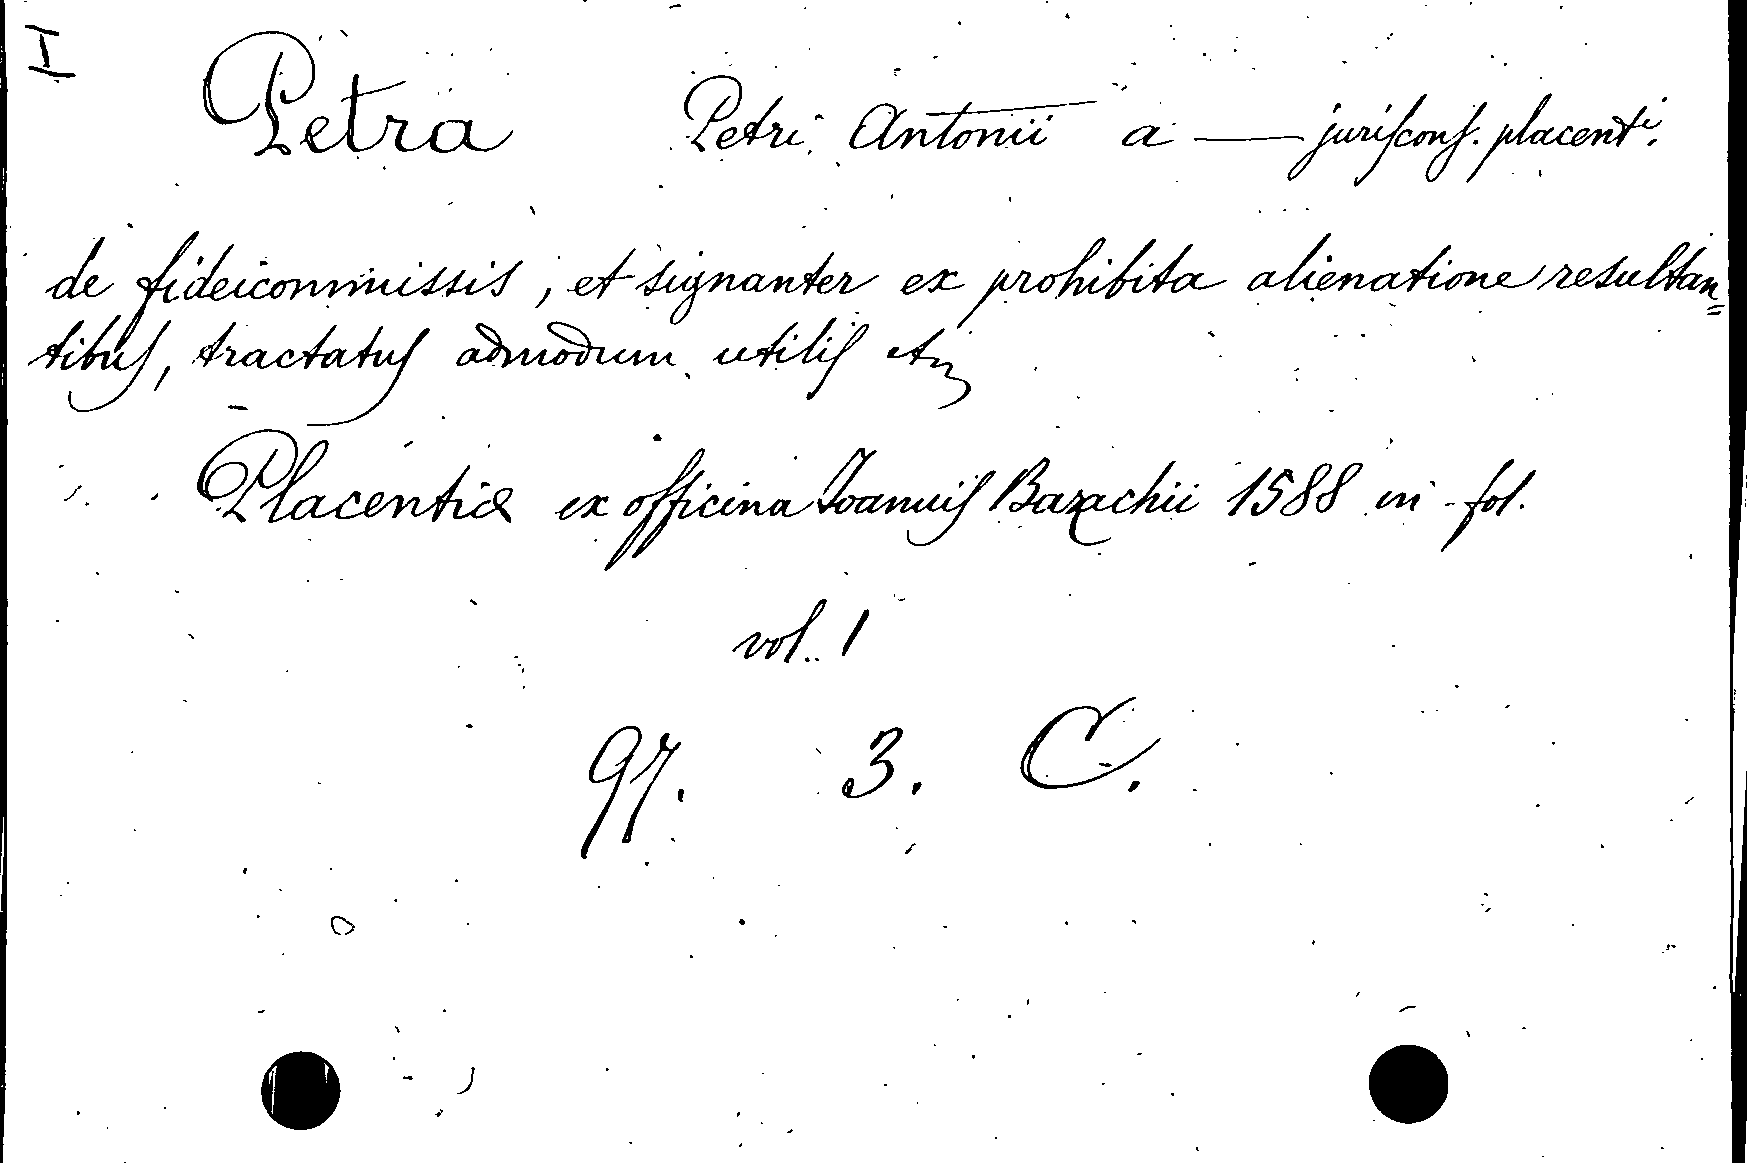 I
Petra Petri Antonii a — juriscons. placenti.
de fideicommissis, et signanter ex prohibita alienatione resultan=
tibus, tractatus admodum utilis etc
Placentiæ ex officina Joannis Bazachii 1588 in-fol.
vol. 1
97. 3. C.